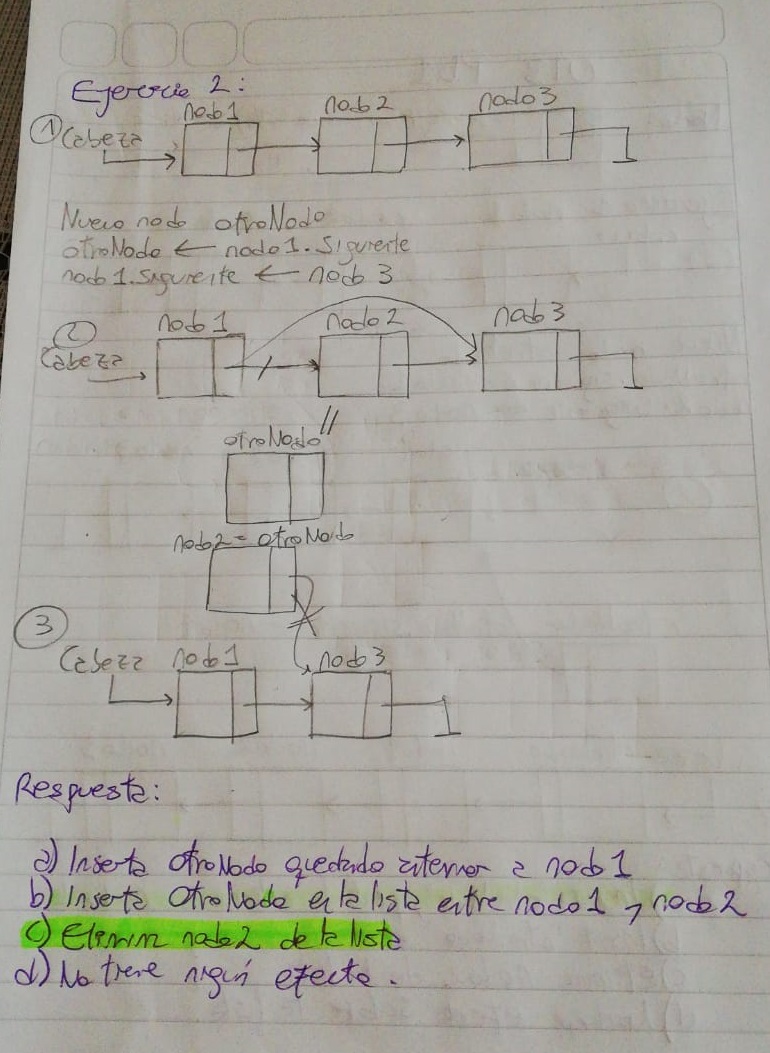 Ejercicio 2:
nodo1 nodo2 nodo3
① Cabeza
Nuevo nodo otroNodo
otroNodo ← nodo1.Siguiente
nodo1.Siguiente ← nodo3
② nodo1 nodo2 nodo3
Cabeza
otroNodo
nodo2 = otroNodo
③
Cabeza nodo1 nodo3
Respuesta:
a) Inserta otroNodo quedando anterior a nodo1
b) Inserta otroNodo en la lista entre nodo1 y nodo2
c) Eliminar nodo2 de la lista
d) No tiene ningún efecto.